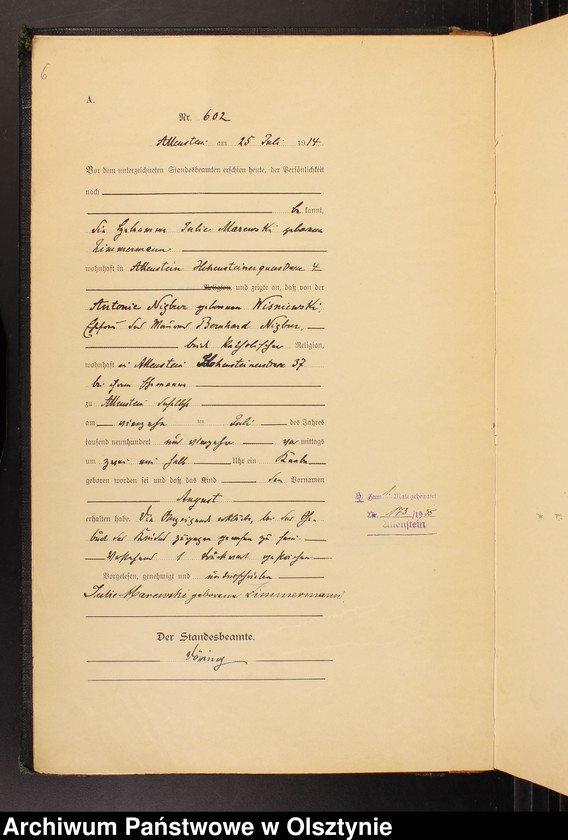 6
A.
Nr. 602
Allenstein am 25 Juli 1914
Vor dem unterzeichneten Standesbeamten erschien heute, der Persönlichkeit
nach
be kannt,
die Hebamme Julie Marewski geborene
Zimmermann
wohnhaft in Allenstein Hohensteinerquerstrasse 4
Religion, und zeigte an, daß von der
Antonie Nigbur geborenen Wisniewski,
Ehefrau des Maurers Bernhard Nigbur,
beide Katholischer Religion,
wohnhaft in Allenstein Hohensteinerstrasse 37
bei ihrem Ehemanne
zu Allenstein
am vierzehn ten Juli des Jahres
tausend neunhundert und vierzehn vor mittags
um zwei ein halb Uhr ein Knabe
geboren worden sei und daß das Kind den Vornamen
August
erhalten habe. Die Anzeigende erklärte, bei der Ge-
burt des Kindes zugegen gewesen zu sein.
Vorstehend 1 Druckwort gestrichen
Vorgelesen, genehmigt und unterschrieben
Julie Marewski geborene Zimmermann
Der Standesbeamte.
H. Zum 1. Male geheiratet
Nr. 173/19
Allenstein
Archiwum Państwowe w Olsztynie